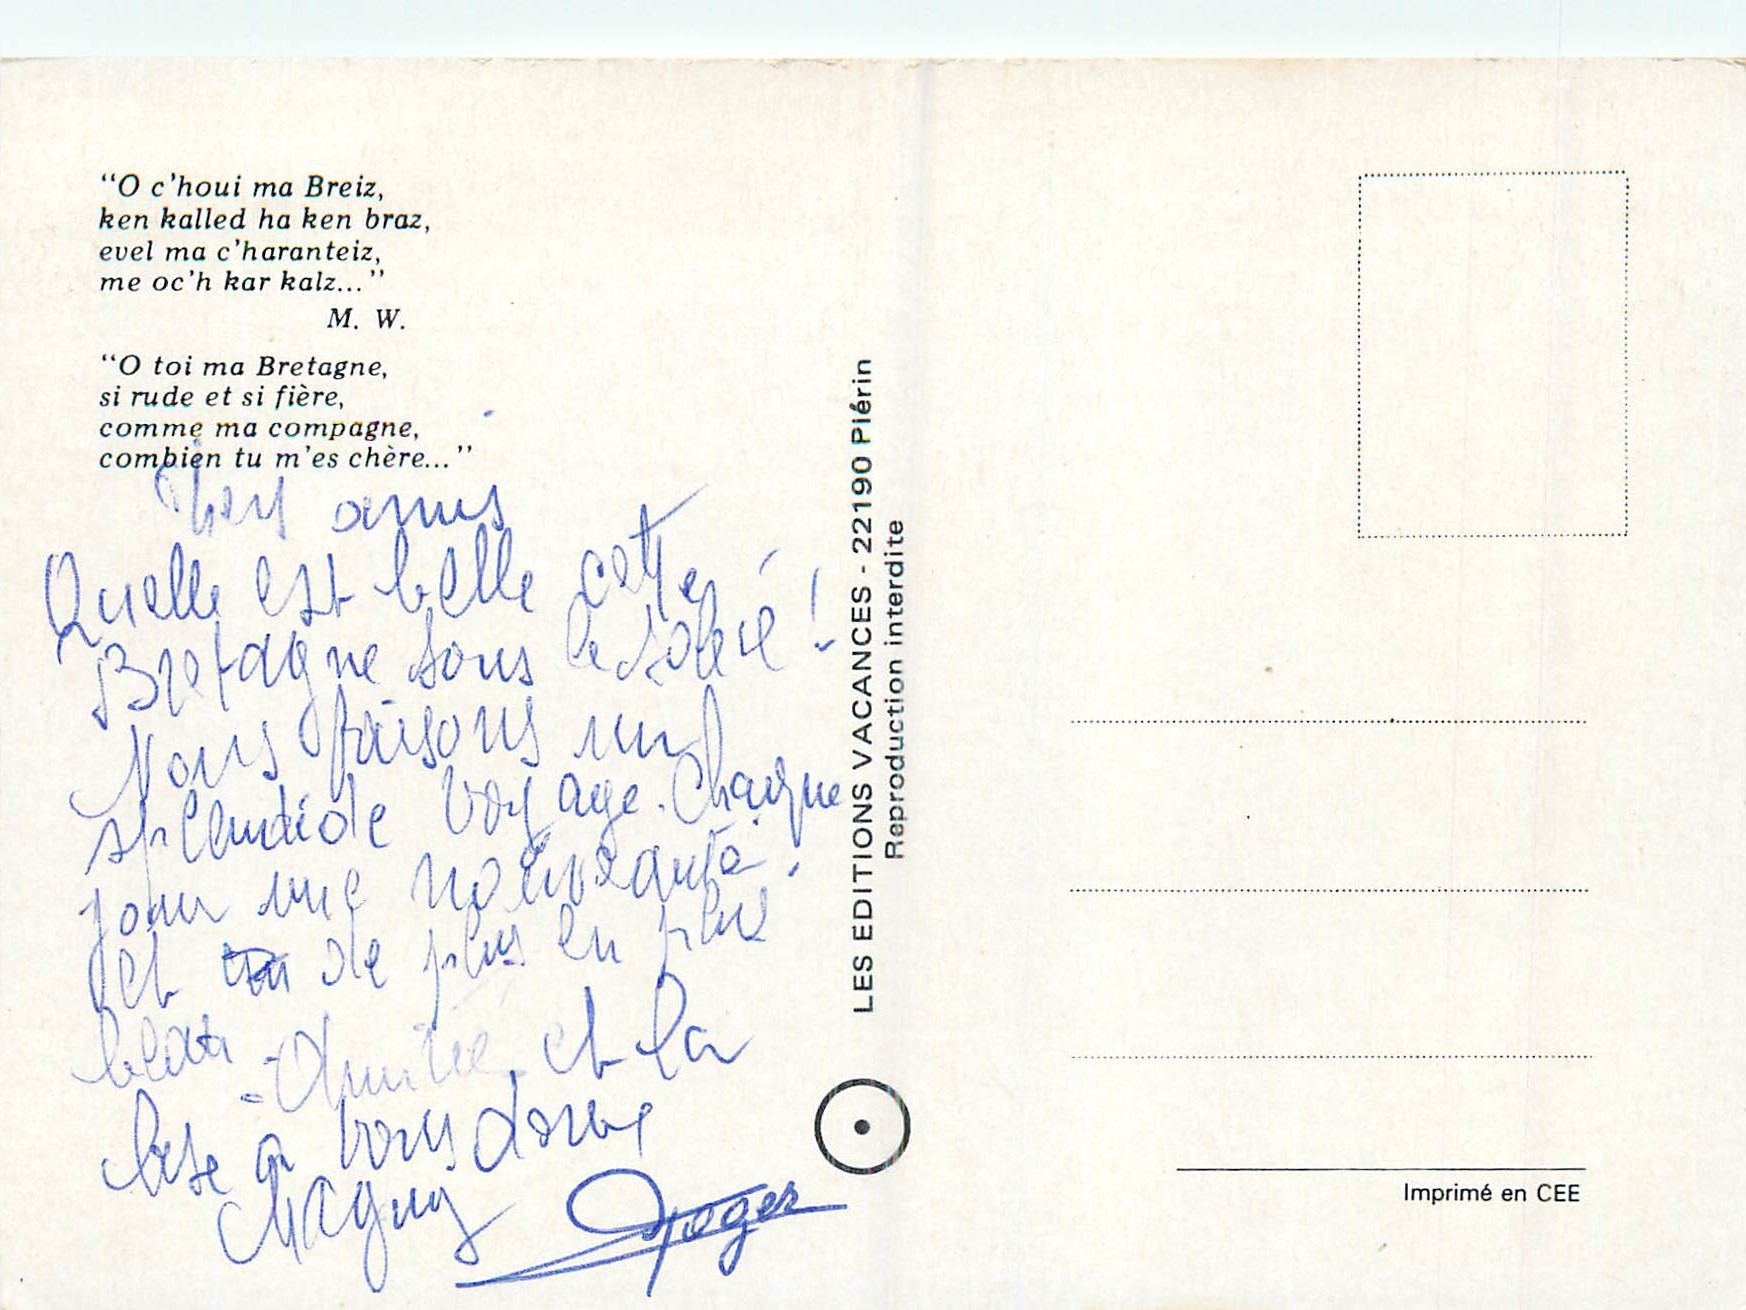 “O c'houi ma Breiz,
ken kalled ha ken braz,
evel ma c'haranteiz,
me oc'h kar kalz...”
M. W.
“O toi ma Bretagne,
si rude et si fière,
comme ma compagne,
combien tu m'es chère...”
Chers amis
Quelle est belle cette
Bretagne sous le soleil !
Nous faisons un
splendide voyage. Chaque
jour une nouveauté.
et de plus en plus
beau - Amitié et la
bise à vous
Maguy Roger
LES EDITIONS VACANCES - 22190 Plérin
Reproduction interdite
Imprimé en CEE